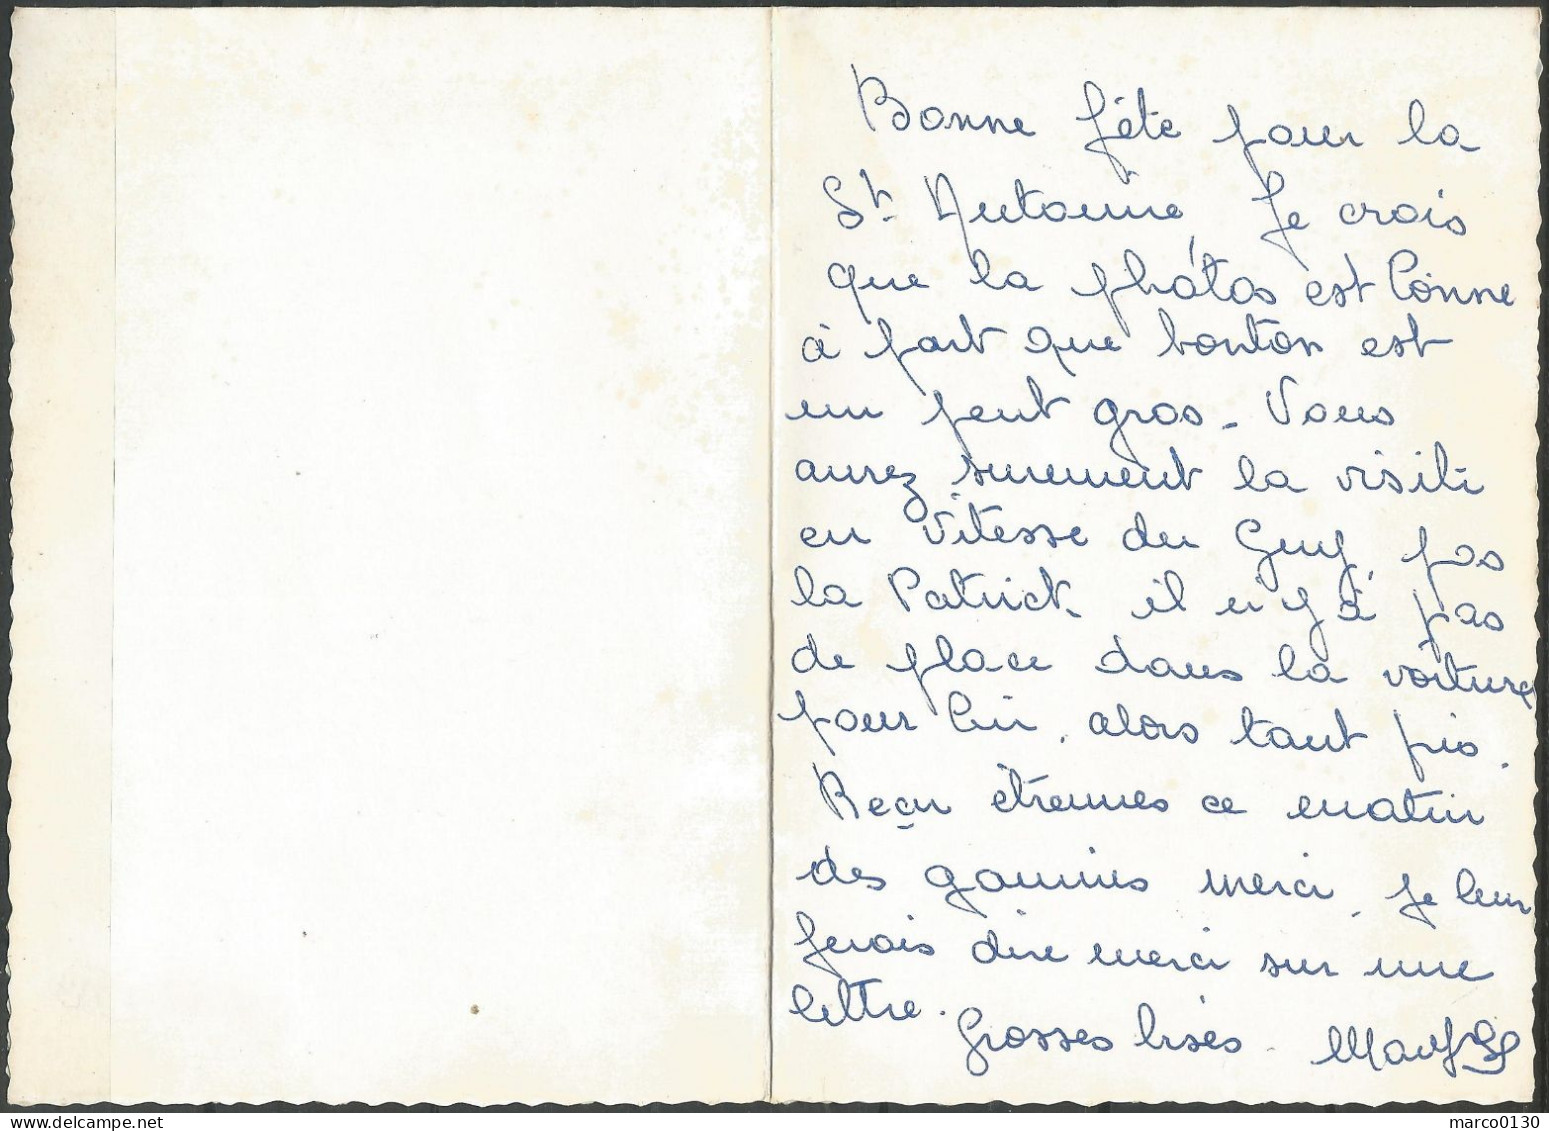 Bonne fête pour la
St. Antoine, Je crois
que la phótos est bonne
à part que tonton est
un peut gros - Vous
aurez surement la visite
en vitesse du Guy, pas
la Patrick il n'y á pas
de place dans la voiture
pour lui, alors tant pis.
Reçu étrennes ce matin
des gamins merci, je leur
ferais dire merci sur une
lettre.
Grosses bises.
marco0130